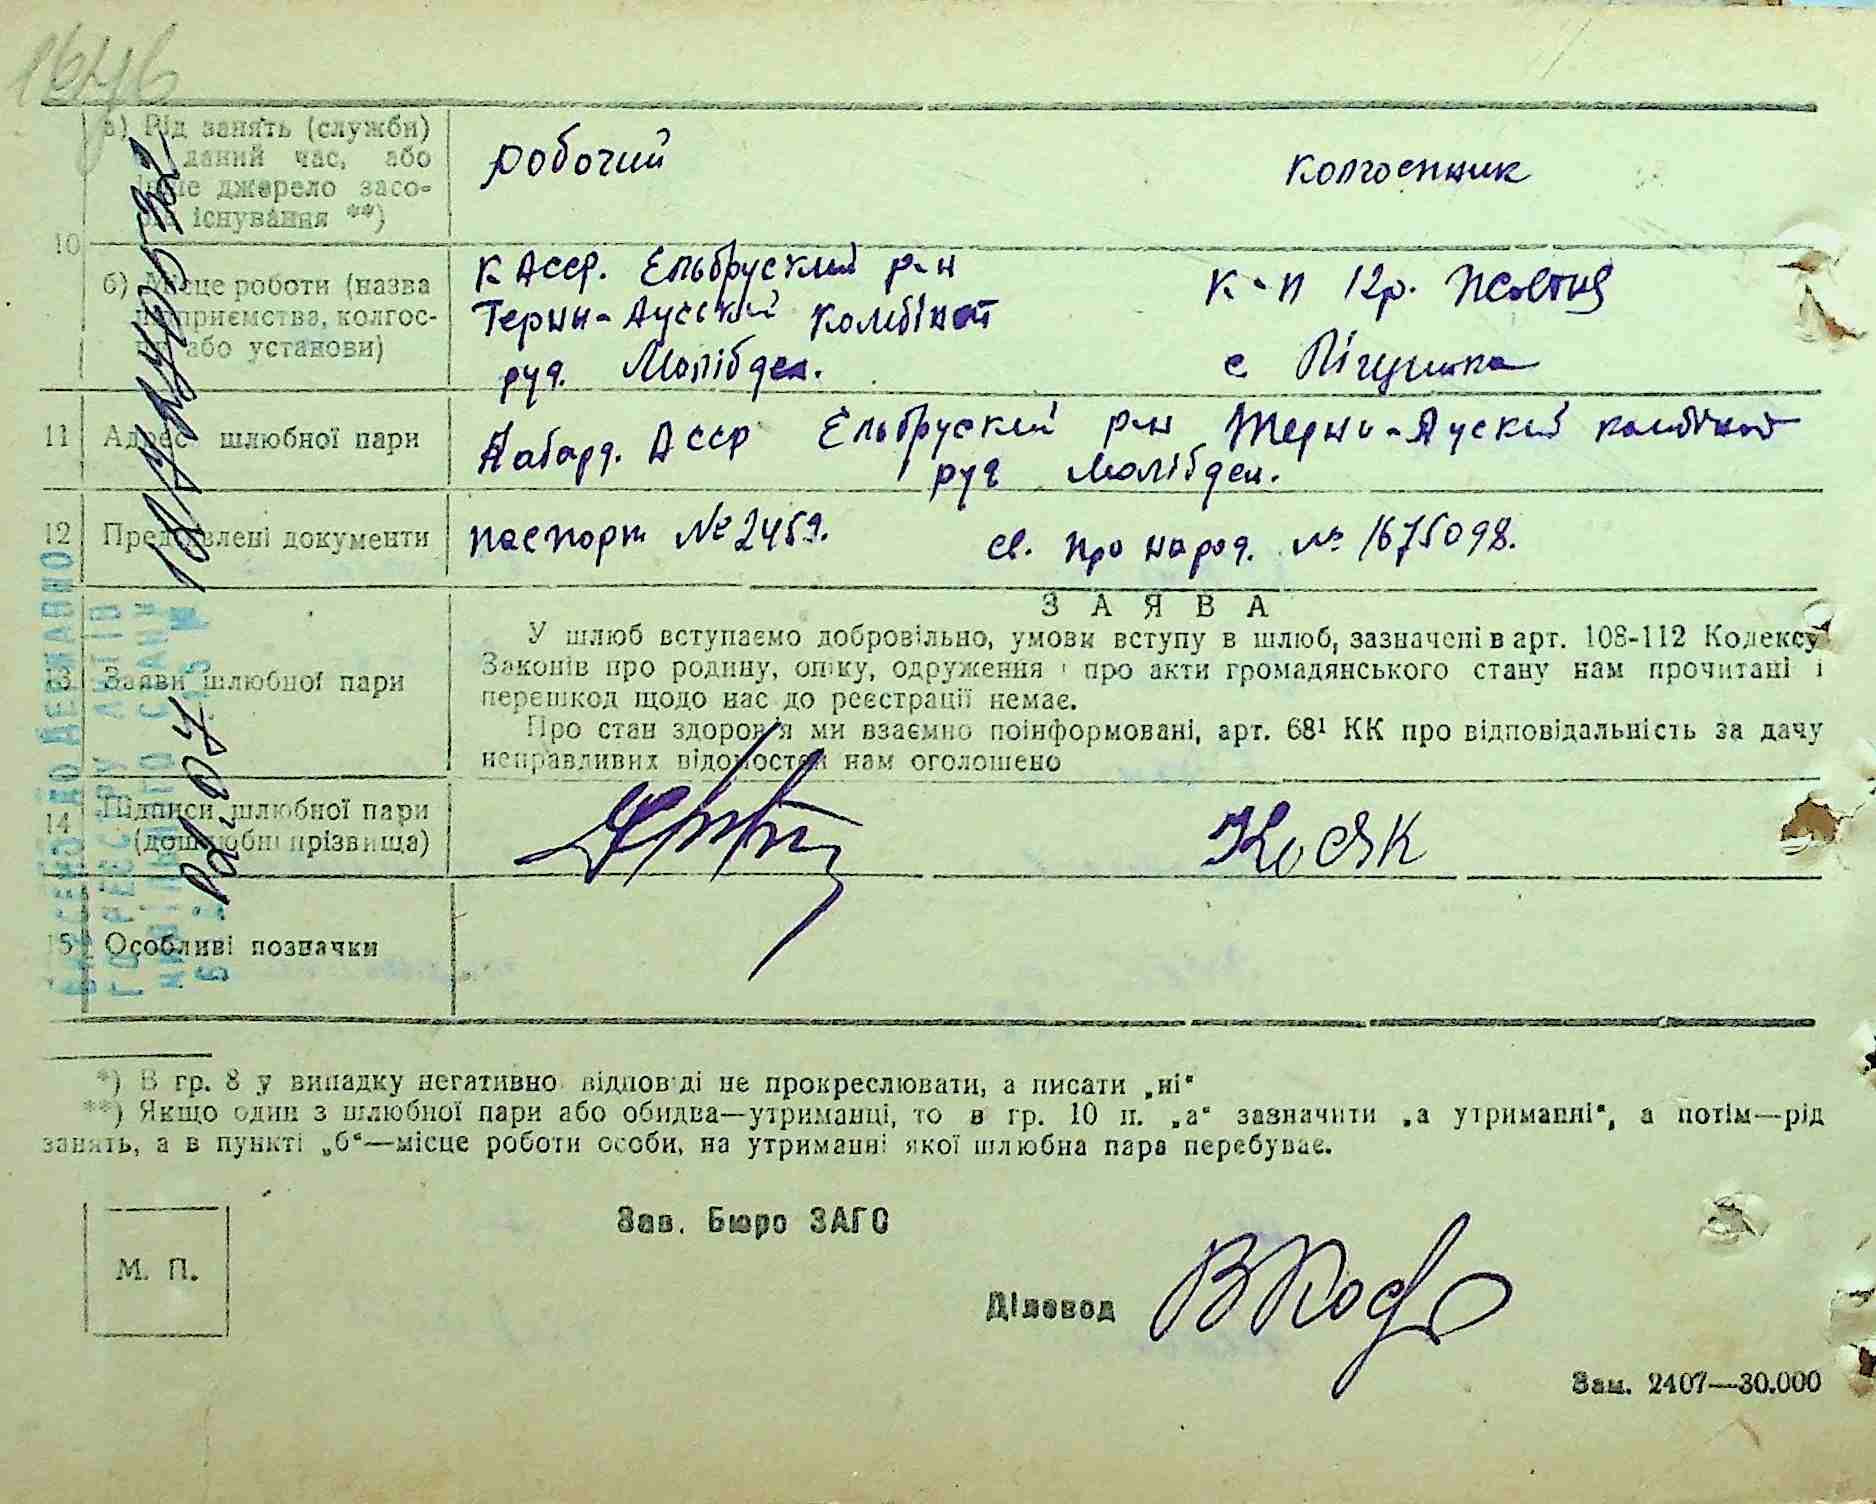 1646
10
а) Рід занять (служби)
даний час, або
інше джерело засо-
існування **)
робочий
колгоспник
б) Місце роботи (назва
підприємства, колгос-
або установи)
К АССР. Ельбруский р-н
Терни-Ауський комбінат
руд. Молібден.
к-п 12 р. Жовтня
с
11
Адреса шлюбної пари
Кабард. АССР Ельбруский р-н Терни-Ауский комбінат
руд молібден.
12
Пред'явлені документи
паспорт № 2459.
св. про народ. № 1675098.
13
Заяви шлюбної пари
ЗАЯВА
У шлюб вступаємо добровільно, умови вступу в шлюб, зазначені в арт. 108-112 Кодексу
Законів про родину, опіку, одруження і про акти громадянського стану нам прочитані і
перешкод щодо нас до реєстрації немає.
Про стан здоров'я ми взаємно поінформовані, арт. 68¹ КК про відповідальність за дачу
неправливих відомостей нам оголошено
14
Підписи шлюбної пари
(дошлюбні прізвища)
Косяк
15
Особливі позначки
ВНЕСЕНО ДО ДЕРЖАВНОГО
РЕЄСТРУ АКТІВ
ЦИВІЛЬНОГО СТАНУ
*) В гр. 8 у випадку негативно відповіді не прокреслювати, а писати „ні"
**) Якщо один з шлюбної пари або обидва—утриманці, то в гр. 10 п. „а" зазначити „а утриманні", а потім—рід
занять, а в пункті „б"—місце роботи особи, на утриманні якої шлюбна пара перебуває.
Зав. Бюро ЗАГС
М. П.
Діловод
Зам. 2407—30.000